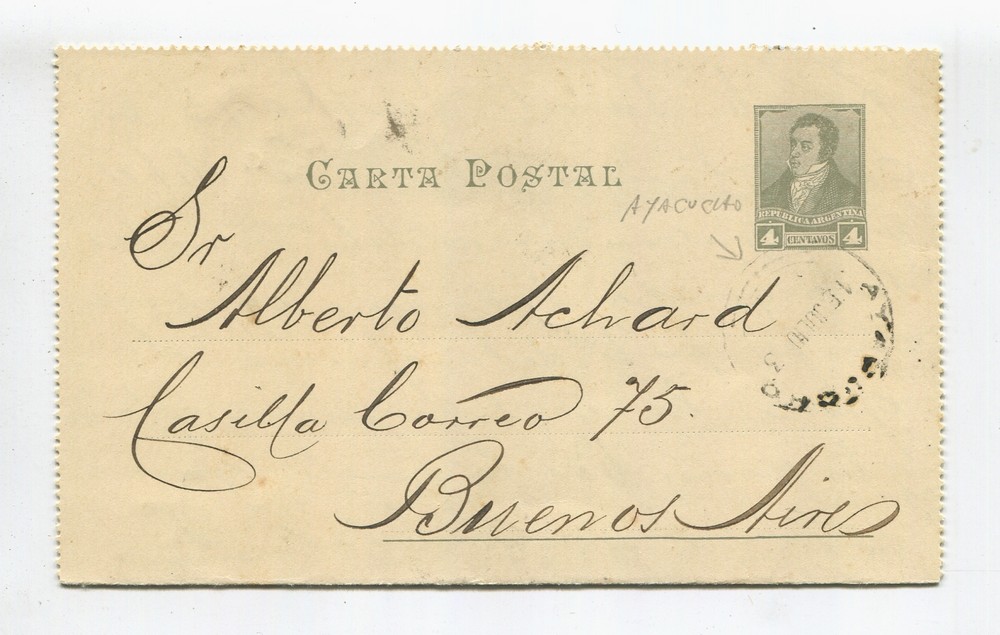 CARTA POSTAL
REPUBLICA ARGENTINA
4 CENTAVOS 4
AYACUCHO
AYACUCHO
15 JULIO 3
Sr
Alberto Achard
Casilla Correo 75.
Buenos Aires